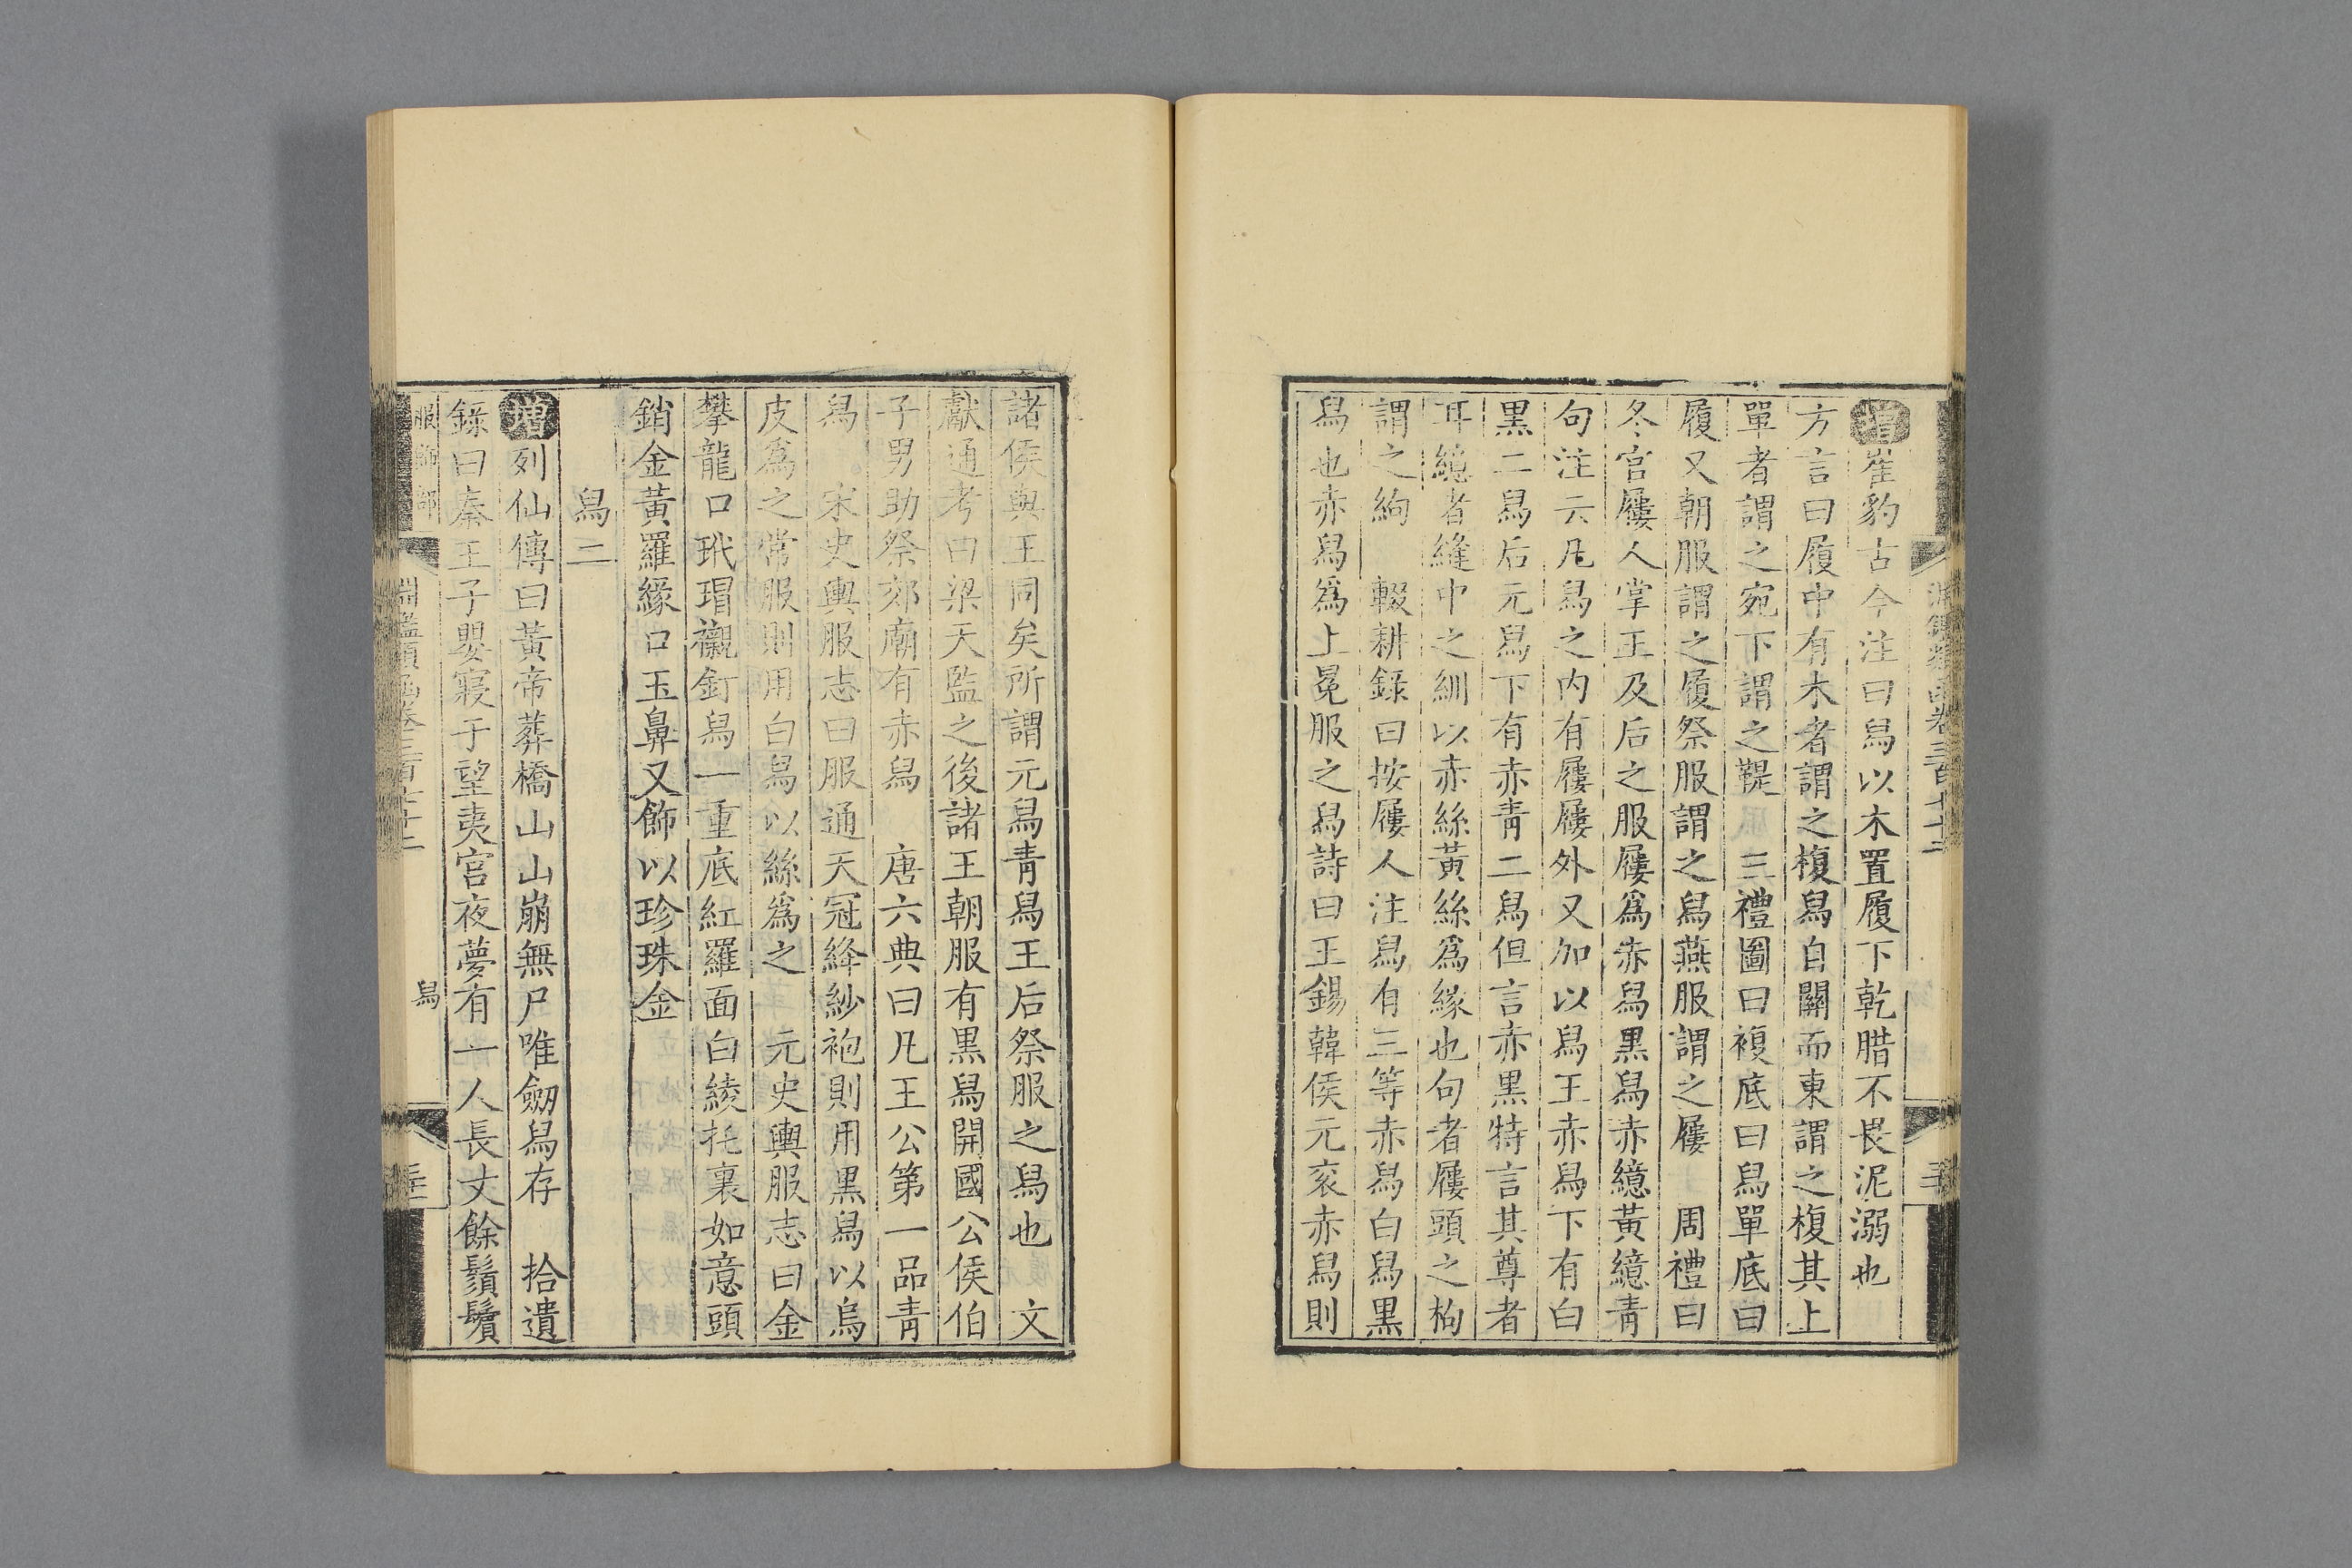 增崔豹古今注曰舄以木置履下乾腊不畏泥溺也
方言曰履中有木者謂之複舄自關而東謂之複其上
單者謂之宛下謂之鞮　三禮圖曰複底曰舄單底曰
履又朝服謂之履祭服謂之舄燕服謂之屨　周禮曰
冬官屨人掌王及后之服屨爲赤舄黑舄赤繶黃繶青
句注云凡舄之内有屨屨外又加以舄王赤舄下有白
黒二舄后元舄下有赤青二舄但言赤黒特言其尊者
耳繶者縫中之紃以赤絲黃絲爲緣也句者屨頭之枸
謂之絇　輟耕錄曰按屨人注舄有三等赤舄白舄黑
舄也赤舄爲上冕服之舄詩曰王錫韓侯元衮赤舄則
諸侯與王同矣所謂元舄青舄王后祭服之舄也　文
獻通考曰梁天監之後諸王朝服有黒舄開國公侯伯
子男助祭郊廟有赤舄　唐六典曰凡王公第一品青
舄　宋史輿服志曰服通天冠絳紗袍則用黒舄以烏
皮爲之常服則用白舄以絲爲之　元史輿服志曰金
攀龍口玳瑁襯釘舄一重底紅羅面白綾托裏如意頭
銷金黃羅緣口玉鼻又飾以珍珠金
舄二
增列仙傳曰黃帝葬橋山山崩無尸唯劒舄存　拾遺
錄曰秦王子嬰寢于望夷宮夜夢有一人長丈餘鬚鬢
服飾部
舄
淵鑑類函卷三百七十二